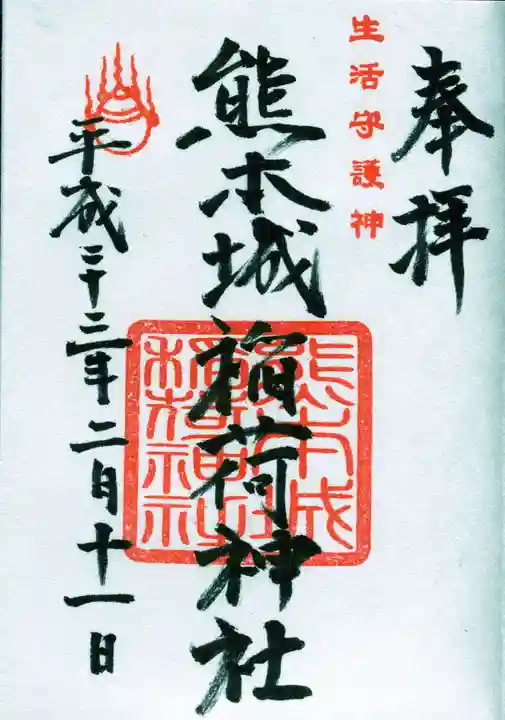 奉拝
生活守護神
熊本城稲荷神社
熊本城
稲荷神社
平成二十三年二月十一日